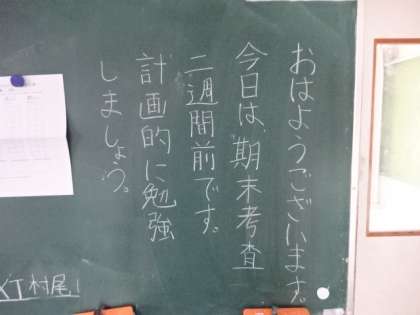 おはようございます。
今日は、期末考査
二週間前です。
計画的に勉強
しましょう。
村尾!